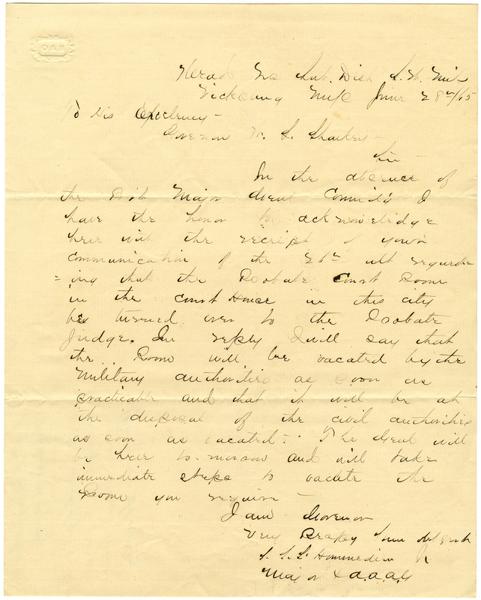 Head Qrs Sub. Dist S. W. Miss
Vicksburg Miss June 28th/65
To His Excelency
Governor W. L. Sharkey
Sir
In the absence of
the Dist Major Genl Commd'g I
have the honor to acknowledge
heir with the receipt of your
communication of the 26th ult requste
=ing that the Probate Court Room
in the Court House in this city
be turned over to the Probate
Judge. In reply I will say that
the Room will be vacated by the
Military authorities as soon as
practicable and that it will be at
the disposal of the civil authorities
as soon as vacated. The Genl will
be heir to-morrow and will take
immediate steps to vacate the
Room you require
I am Governor
Very Respty Your obt Servt
Hommedieu
Major & A.A.A.G